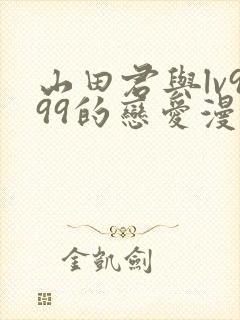 山田君與lv9
99的戀愛漫
金凱劍